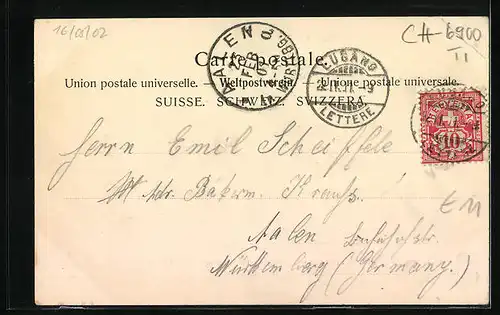 16/08/02
CH-6900
II
Carte postale.
Union postale universelle. — Weltpostverein. — Unione postale universale.
SUISSE. SCHWEIZ. SVIZZERA.
AALEN
25
FEB
LUGANO
LETTERE
10
Herrn Emil Scheiffele
Bäkerm. Krauß
Aalen Bahnhofstr.
Württemberg (Germany.)
E 11